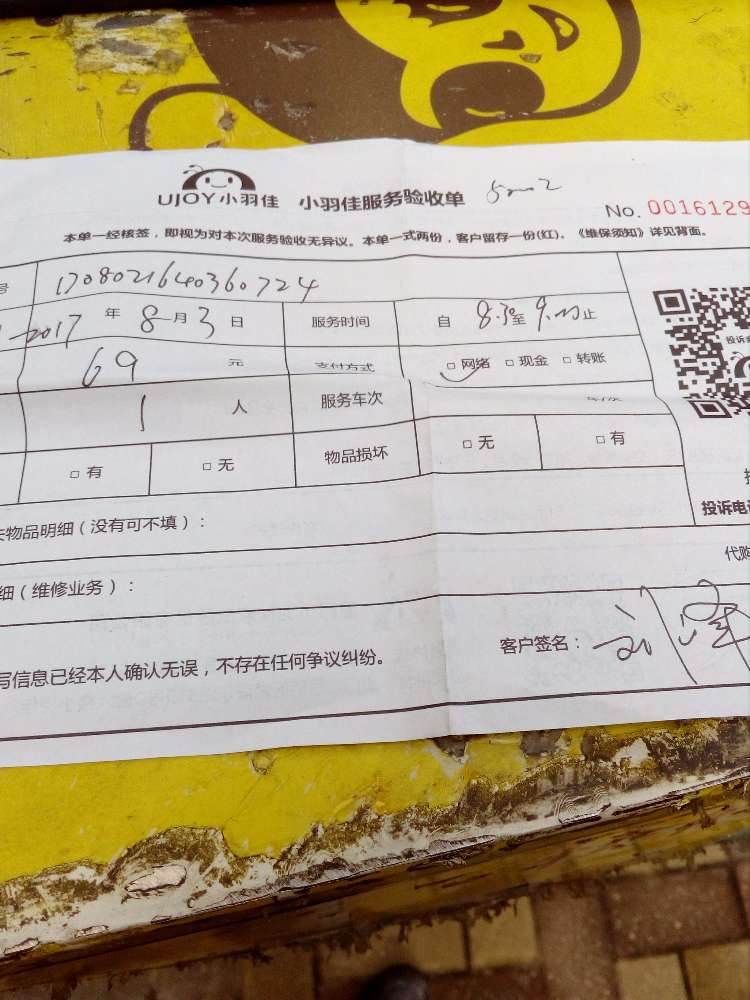 UJOY小羽佳 小羽佳服务验收单
No. 0016129
本单一经核签，即视为对本次服务验收无异议。本单一式两份，客户留存一份(红)。《维保须知》详见背面。
号 1708021640360724
2017 年 8 月 3 日 服务时间 自 8.30至 9.00止
69 元 支付方式 □ 网络 □ 现金 □ 转账
1 人 服务车次
□ 有 □ 无 物品损坏 □ 无 □ 有
物品明细（没有可不填）：
投诉电
细（维修业务）：
代购
写信息已经本人确认无误，不存在任何争议纠纷。
客户签名：